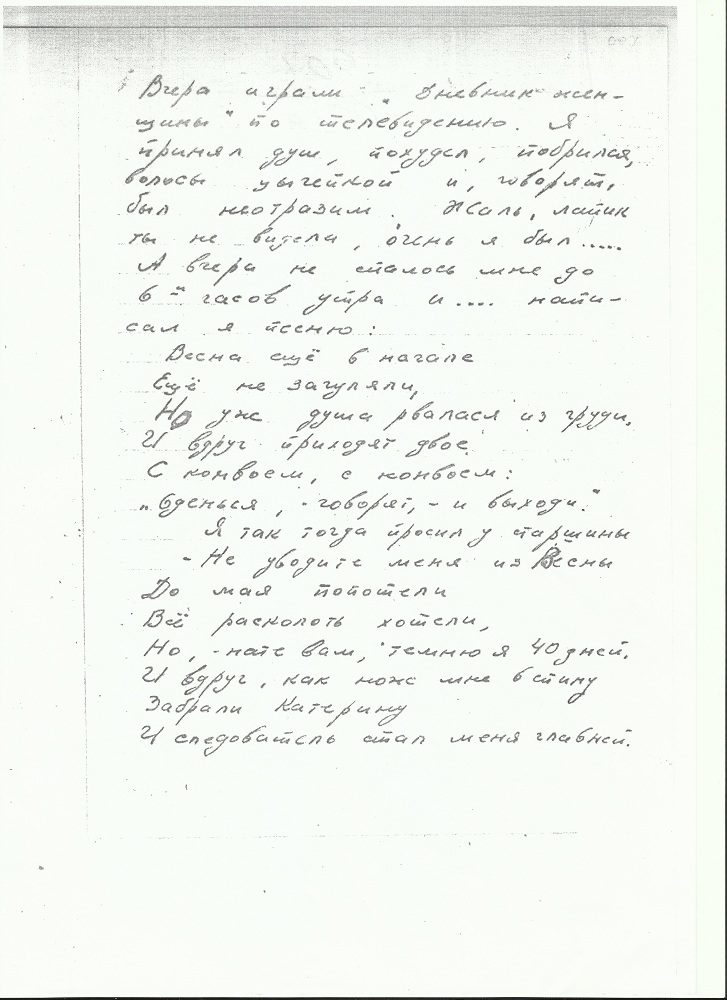 Вчера играли „Дневник жен-
щины" по телевидению. Я
принял душ, похудел, побрился,
волосы ячейкой и, говорят,
был неотразим. Жаль, лапик
ты не видела, очень я был.....
А вчера не спалось мне до
6-и часов утра и .... напи-
сал я песню:
Весна ещё в начале
Ещё не загуляли,
Но уж душа рвалася из груди,
И вдруг приходят двое
С конвоем, с конвоем:
„Оденься, - говорят, - и выходи."
Я так тогда просил у старшины
- Не уводите меня из Весны
До мая попотели
Всё расколоть хотели,
Но, - нате вам, темню я 40 дней.
И вдруг, как нож мне в спину
Забрали Катерину
И следователь стал меня главней.